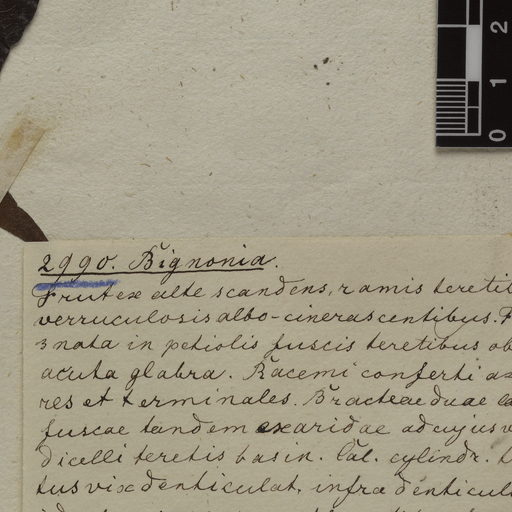 0 1 2
2990. Bignonia.
Frutex alte scandens, ramis teretib
verruculosis albo-cinerascentibus. F
3nata in petiolis fuscis teretibus ob
acuta glabra. Racemi conferti ax
res et terminales. Bracteae duae la
fuscae tandem exaridae ad cujusv
dicelli teretis basin. Cal. cylindr.
tus vix denticulat, infra denticul